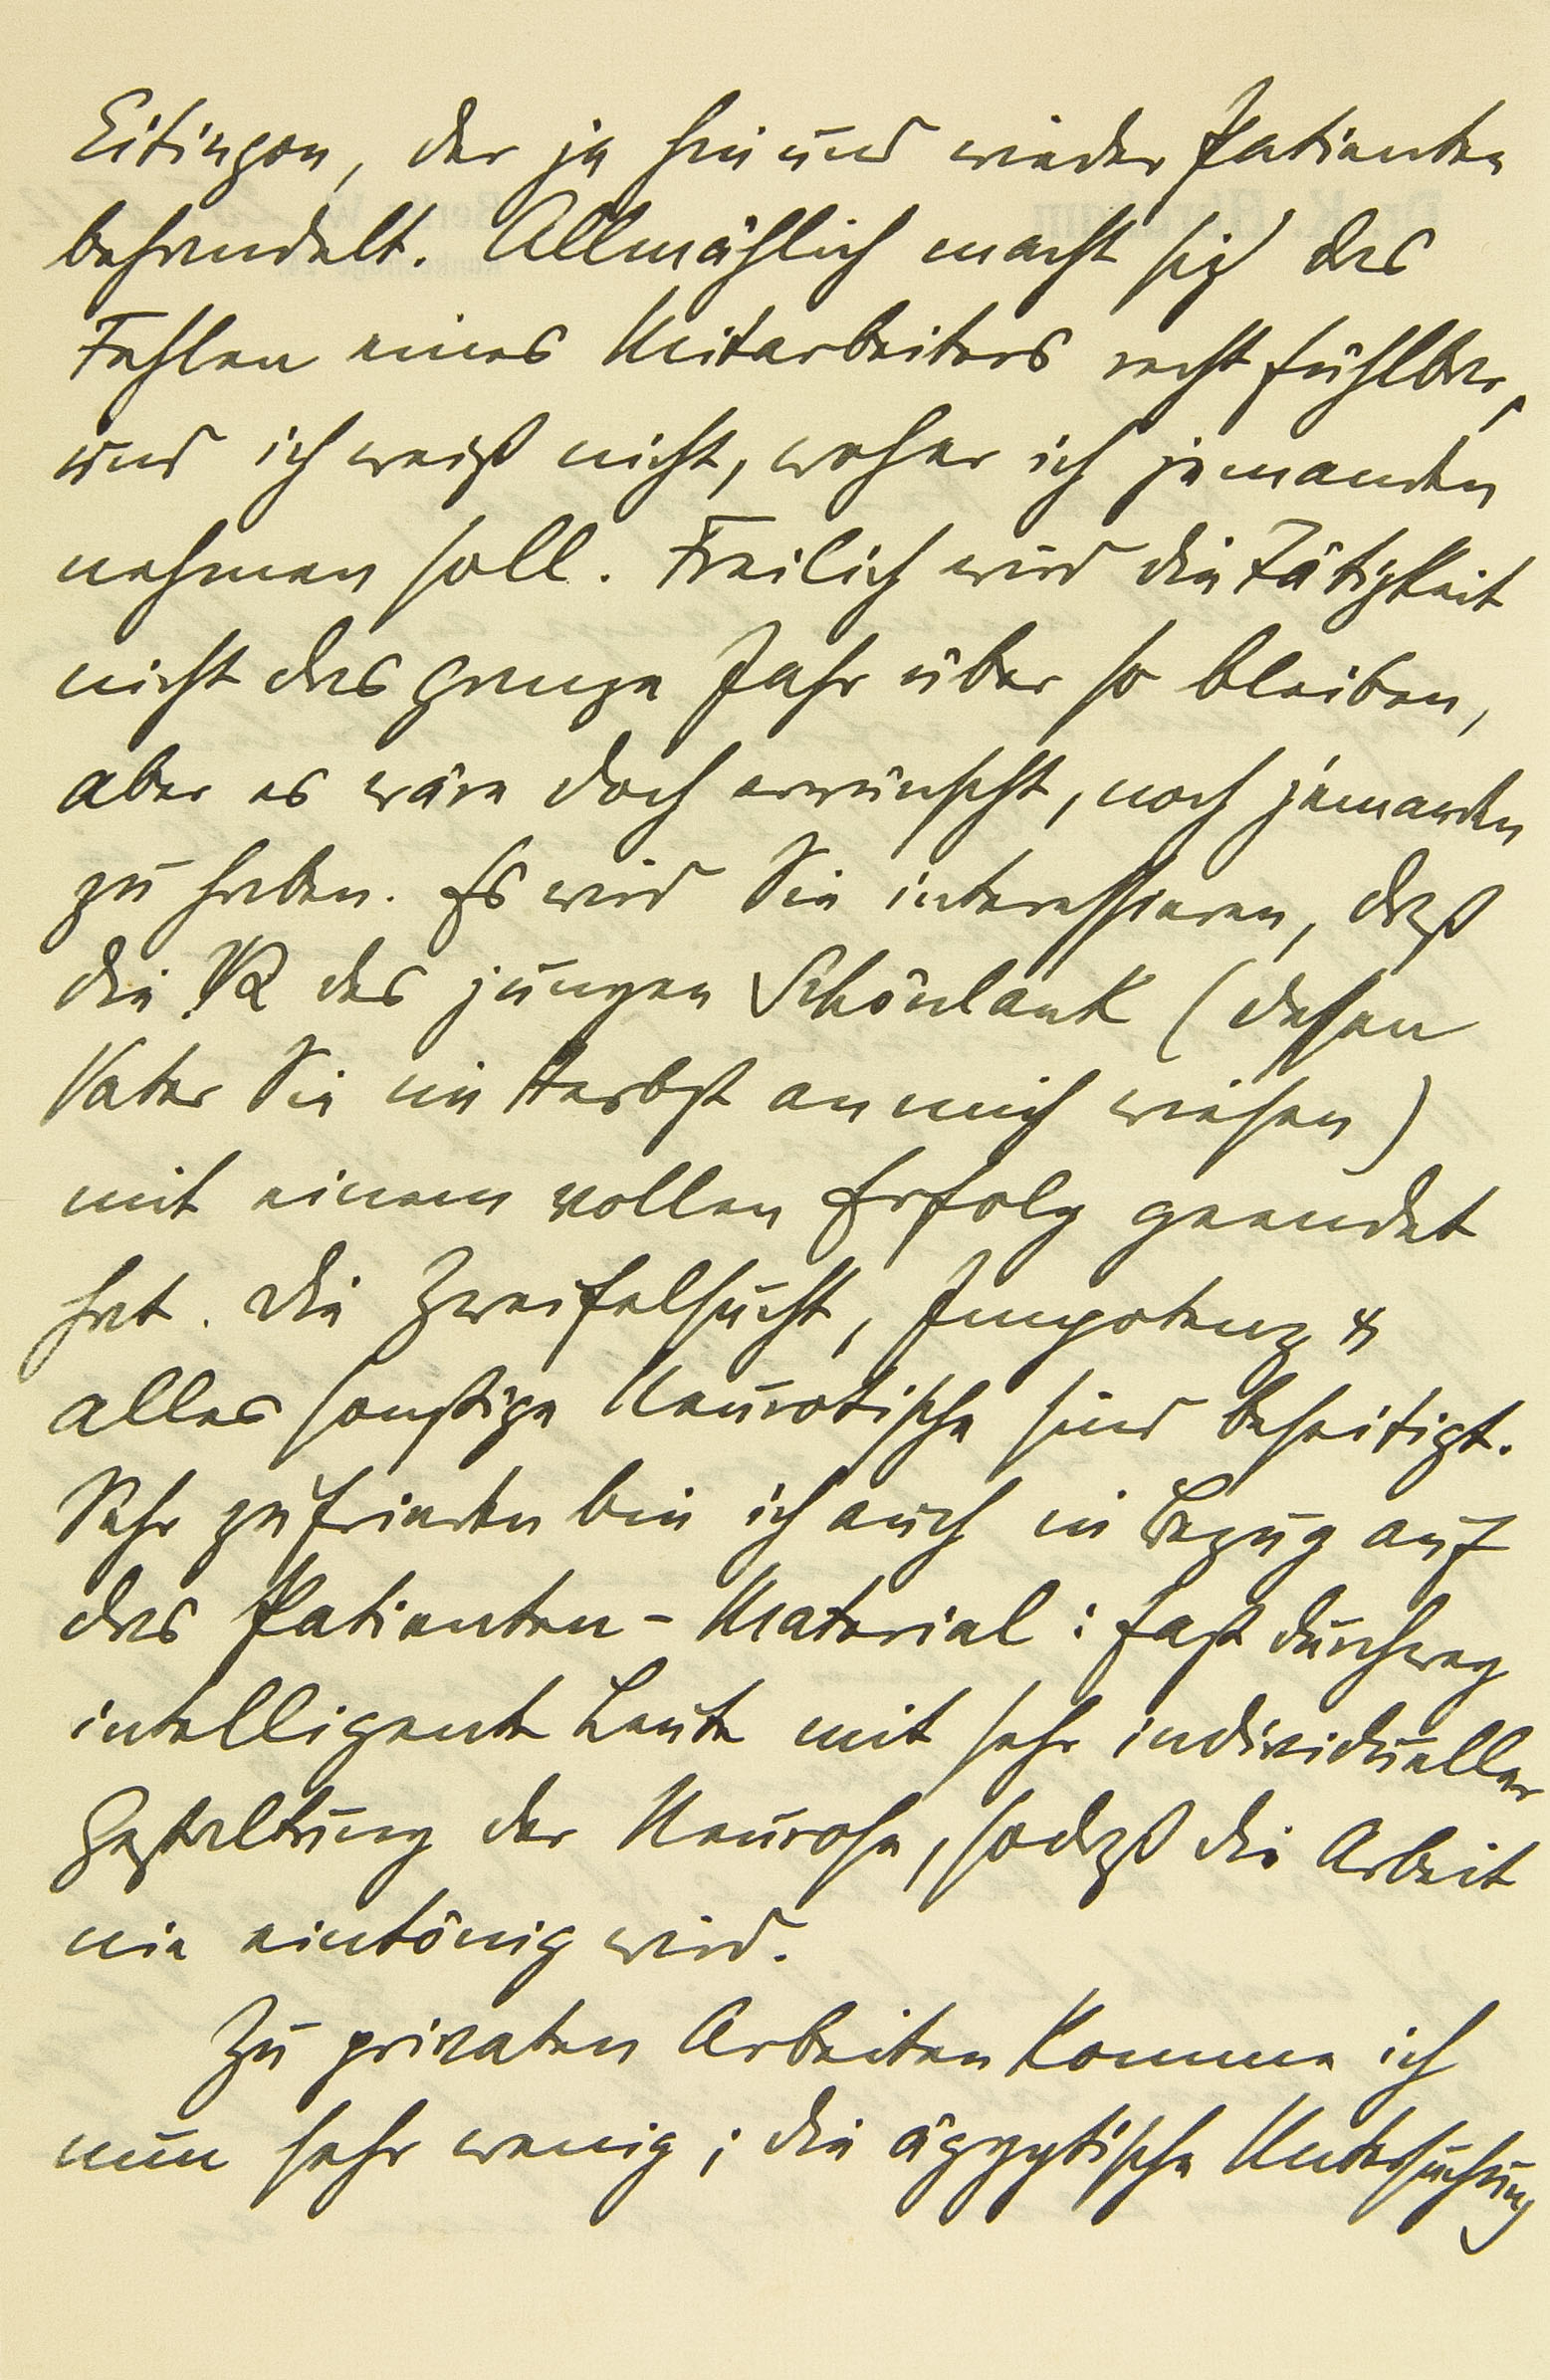 Eitingon, der ja hin und wieder Patienten
behandelt. Allmählich macht sich das
Fehlen eines Mitarbeiters recht fühlbar,
und ich weiß nicht, woher ich jemanden
nehmen soll. Freilich wird die Tätigkeit
nicht das ganze Jahr über so bleiben,
aber es wäre doch erwünscht, noch jemanden
zu haben. Es wird Sie interessieren, daß
die ΨA des jungen Schönlank (dessen
Vater Sie im Herbst an mich wiesen)
mit einem vollen Erfolg geendet
hat. Die Zweifelsucht, Impotenz &
alles sonstige Neurotische sind beseitigt.
Sehr zufrieden bin ich auch in Bezug auf
das Patienten-Material: fast durchweg
intelligente Leute mit sehr individueller
Gestaltung der Neurose, sodaß die Arbeit
nie eintönig wird.
Zu privaten Arbeiten komme ich
nun sehr wenig; die ägyptische Untersuchung